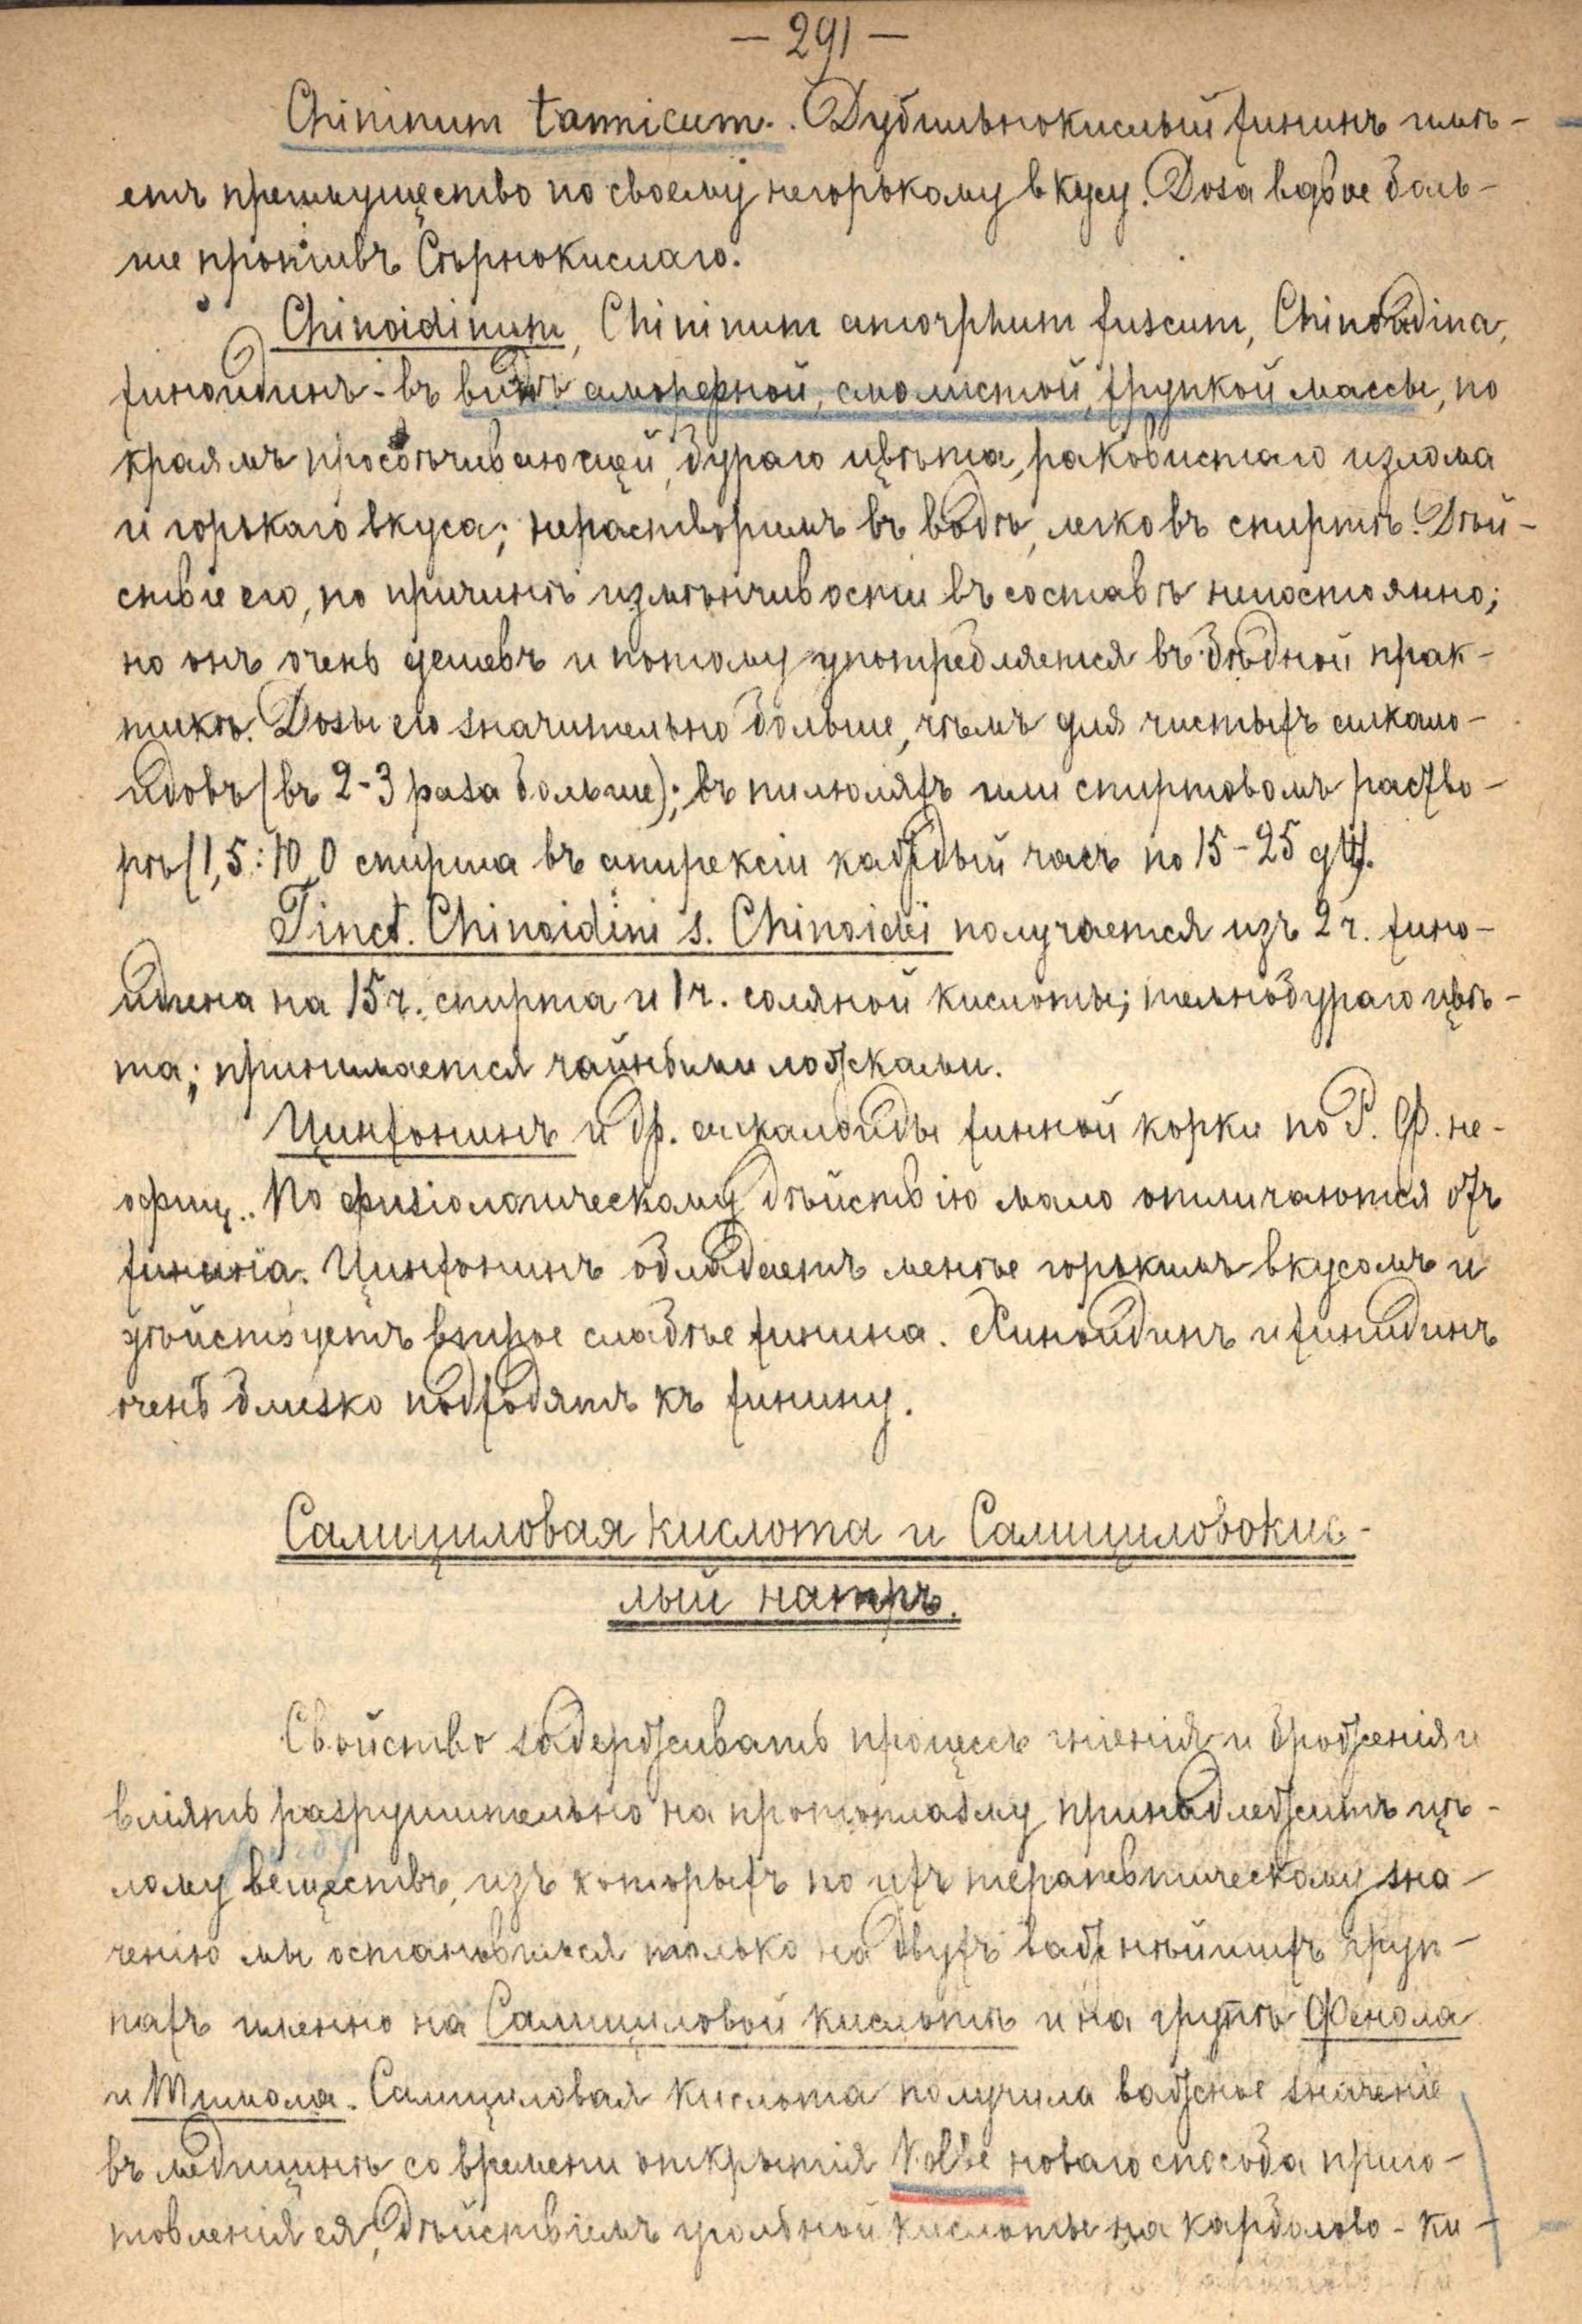 — 291 —
Chininum tannicum. Дубильнокислый хининъ имѣ-
етъ преимущество по своему негорькому вкусу. Доза вдвое боль-
ше противъ Сѣрнокислаго.
Chinoidinum, Chininum amorphum fuscum, Chinoidina,
хиноидинъ - въ видѣ аморфной, смолистой, хрупкой массы, по
краямъ просвѣчивающей, бураго цвѣта, раковистаго излома
и горькаго вкуса; нерастворимъ въ водѣ, легко въ спиртѣ. Дѣй-
ствіе его, по причинѣ измѣнчивости въ составѣ непостоянно;
но онъ очень дешевъ и потому употребляется въ бѣдной прак-
тикѣ. Дозы его значительно больше, чѣмъ для чистыхъ алкало-
идовъ (въ 2-3 раза больше); въ пилюляхъ или спиртовомъ раство-
рѣ (1,5:10,0 спирта въ апирексіи каждый часъ по 15-25 gtt).
Tinct. Chinoidini s. Chinoidei получается изъ 2 ч. хино-
идина на 15 ч. спирта и 1 ч. соляной кислоты; темнобураго цвѣ-
та; принимается чайными ложками.
Цинхонинъ и др. алкалоиды хинной корки по Р. Ф. не-
офиц.. По физіологическому дѣйствію мало отличаются отъ
хинина. Цинхонинъ обладаетъ менѣе горькимъ вкусомъ и
дѣйствуетъ втрое слабѣе хинина. Хиноидинъ и хинидинъ
очень близко подходятъ къ хинину.
Салициловая кислота и Салициловокис-
лый натръ.
Свойство задерживать процессъ гніенія и броженія и
вліять разрушительно на протоплазму принадлежитъ цѣ-
лому веществъ, изъ которыхъ по ихъ терапевтическому зна-
ченію мы остановимся только на двухъ важнѣйшихъ груп-
пахъ именно на Салициловой кислотѣ и на групѣ Фенола
и Тимола. Салициловая кислота получила важное значеніе
въ медицинѣ со времени открытія Kolbe новаго способа приго-
товленія ея, дѣйствіемъ угольной кислоты на карболово-ки-